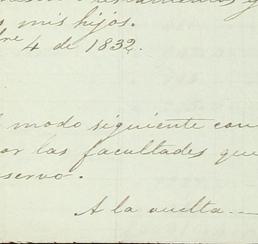 mis hijos.
bre 4 de 1832.
modo siguiente con
or las facultades que
servo.
A la vuelta